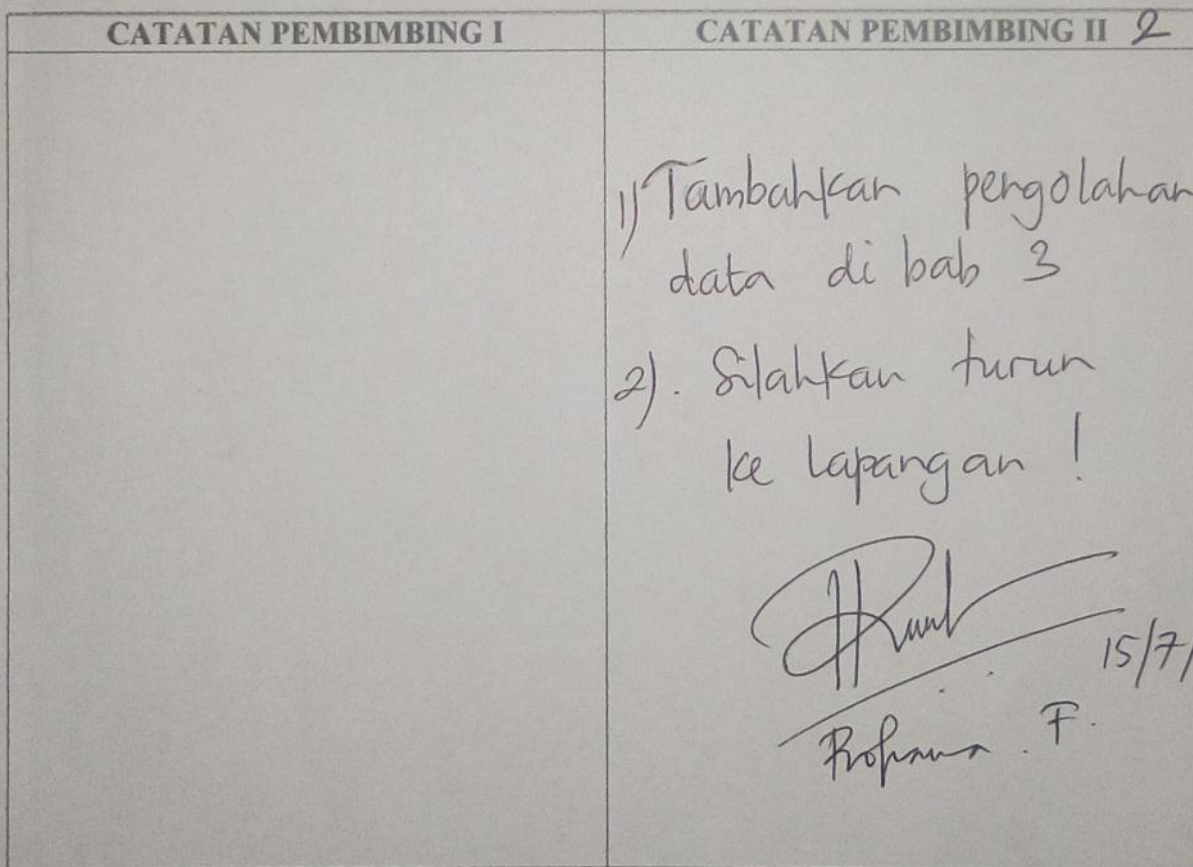 CATATAN PEMBIMBING I
CATATAN PEMBIMBING II 2
1) Tambahkan pengolahan
data di bab 3
2). Silahkan turun
ke lapangan !
15/7/
F.